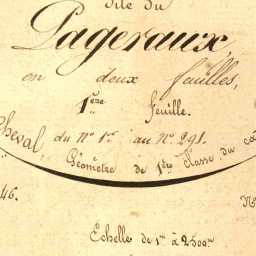 dite du
Pageraux,
en deux feuilles,
1ère feuille.
du N° 1er au N° 291.
Cheval, Géomètre de 1ère Classe du ca
46.
N
Echelle de 1m à 2500m